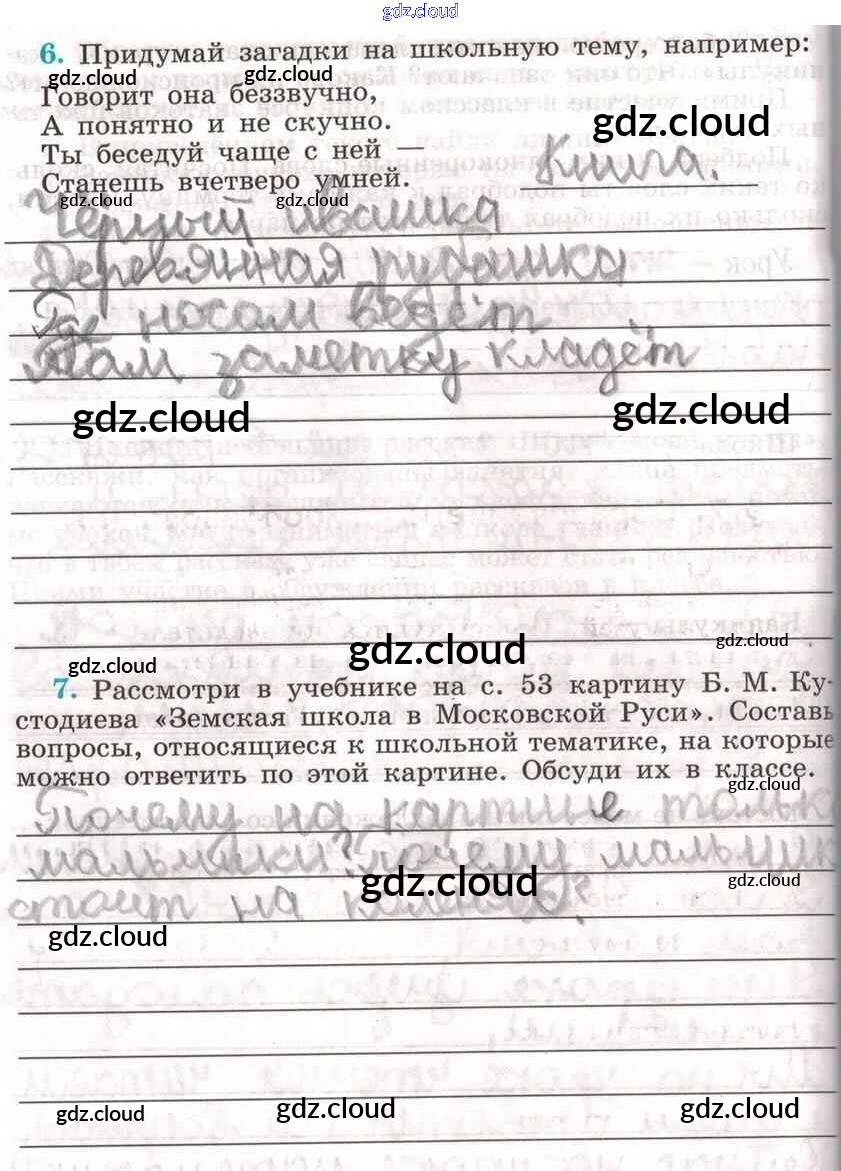 gdz.cloud
6. Придумай загадки на школьную тему, например:
gdz.cloud gdz.cloud
Говорит она беззвучно,
А понятно и не скучно.
gdz.cloud
Ты беседуй чаще с ней —
Станешь вчетверо умней.
Книга.
gdz.cloud gdz.cloud
Чёрный ивашка
Деревянная рубашка
Где носом ведёт
Там заметку кладёт
gdz.cloud gdz.cloud
gdz.cloud gdz.cloud gdz.cloud
7. Рассмотри в учебнике на с. 53 картину Б. М. Ку-
стодиева «Земская школа в Московской Руси». Составь
вопросы, относящиеся к школьной тематике, на которые
можно ответить по этой картине. Обсуди их в классе.
gdz.cloud
Почему на картине только
мальчики? почему мальчик
gdz.cloud gdz.cloud
стоит на коленях?
gdz.cloud
gdz.cloud gdz.cloud gdz.cloud